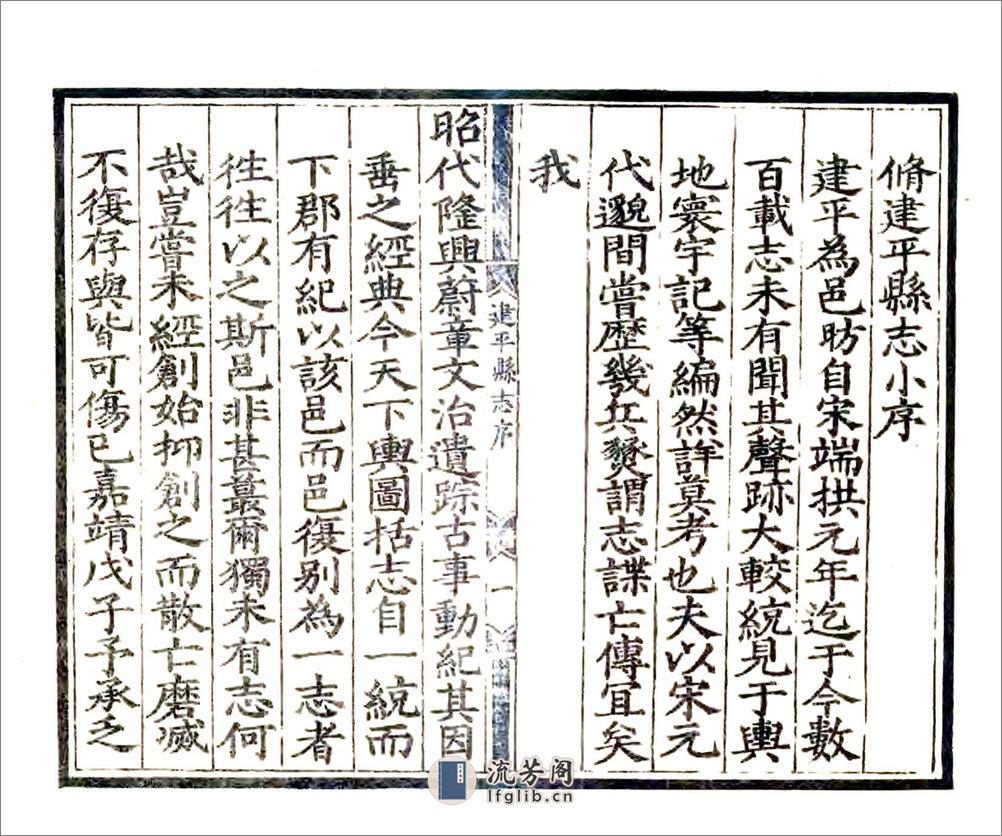 脩建平縣志小序
建平為邑昉自宋端拱元年迄于今數
百載志未有聞其聲跡大較統見于輿
地寰宇記等編然詳莫考也夫以宋元
代邈間嘗歷幾兵燹謂志諜亡傳宜矣
我
建平縣志序
一
昭代隆興蔚章文治遺踪古事動紀其因
垂之經典今天下輿圖括志自一統而
下郡有紀以該邑而邑復别為一志者
徃徃以之斯邑非甚蕞爾獨未有志何
哉豈嘗未經創始抑創之而散亡磨滅
不復存與皆可傷已嘉靖戊子予承乏
流芳阁
lfglib.cn